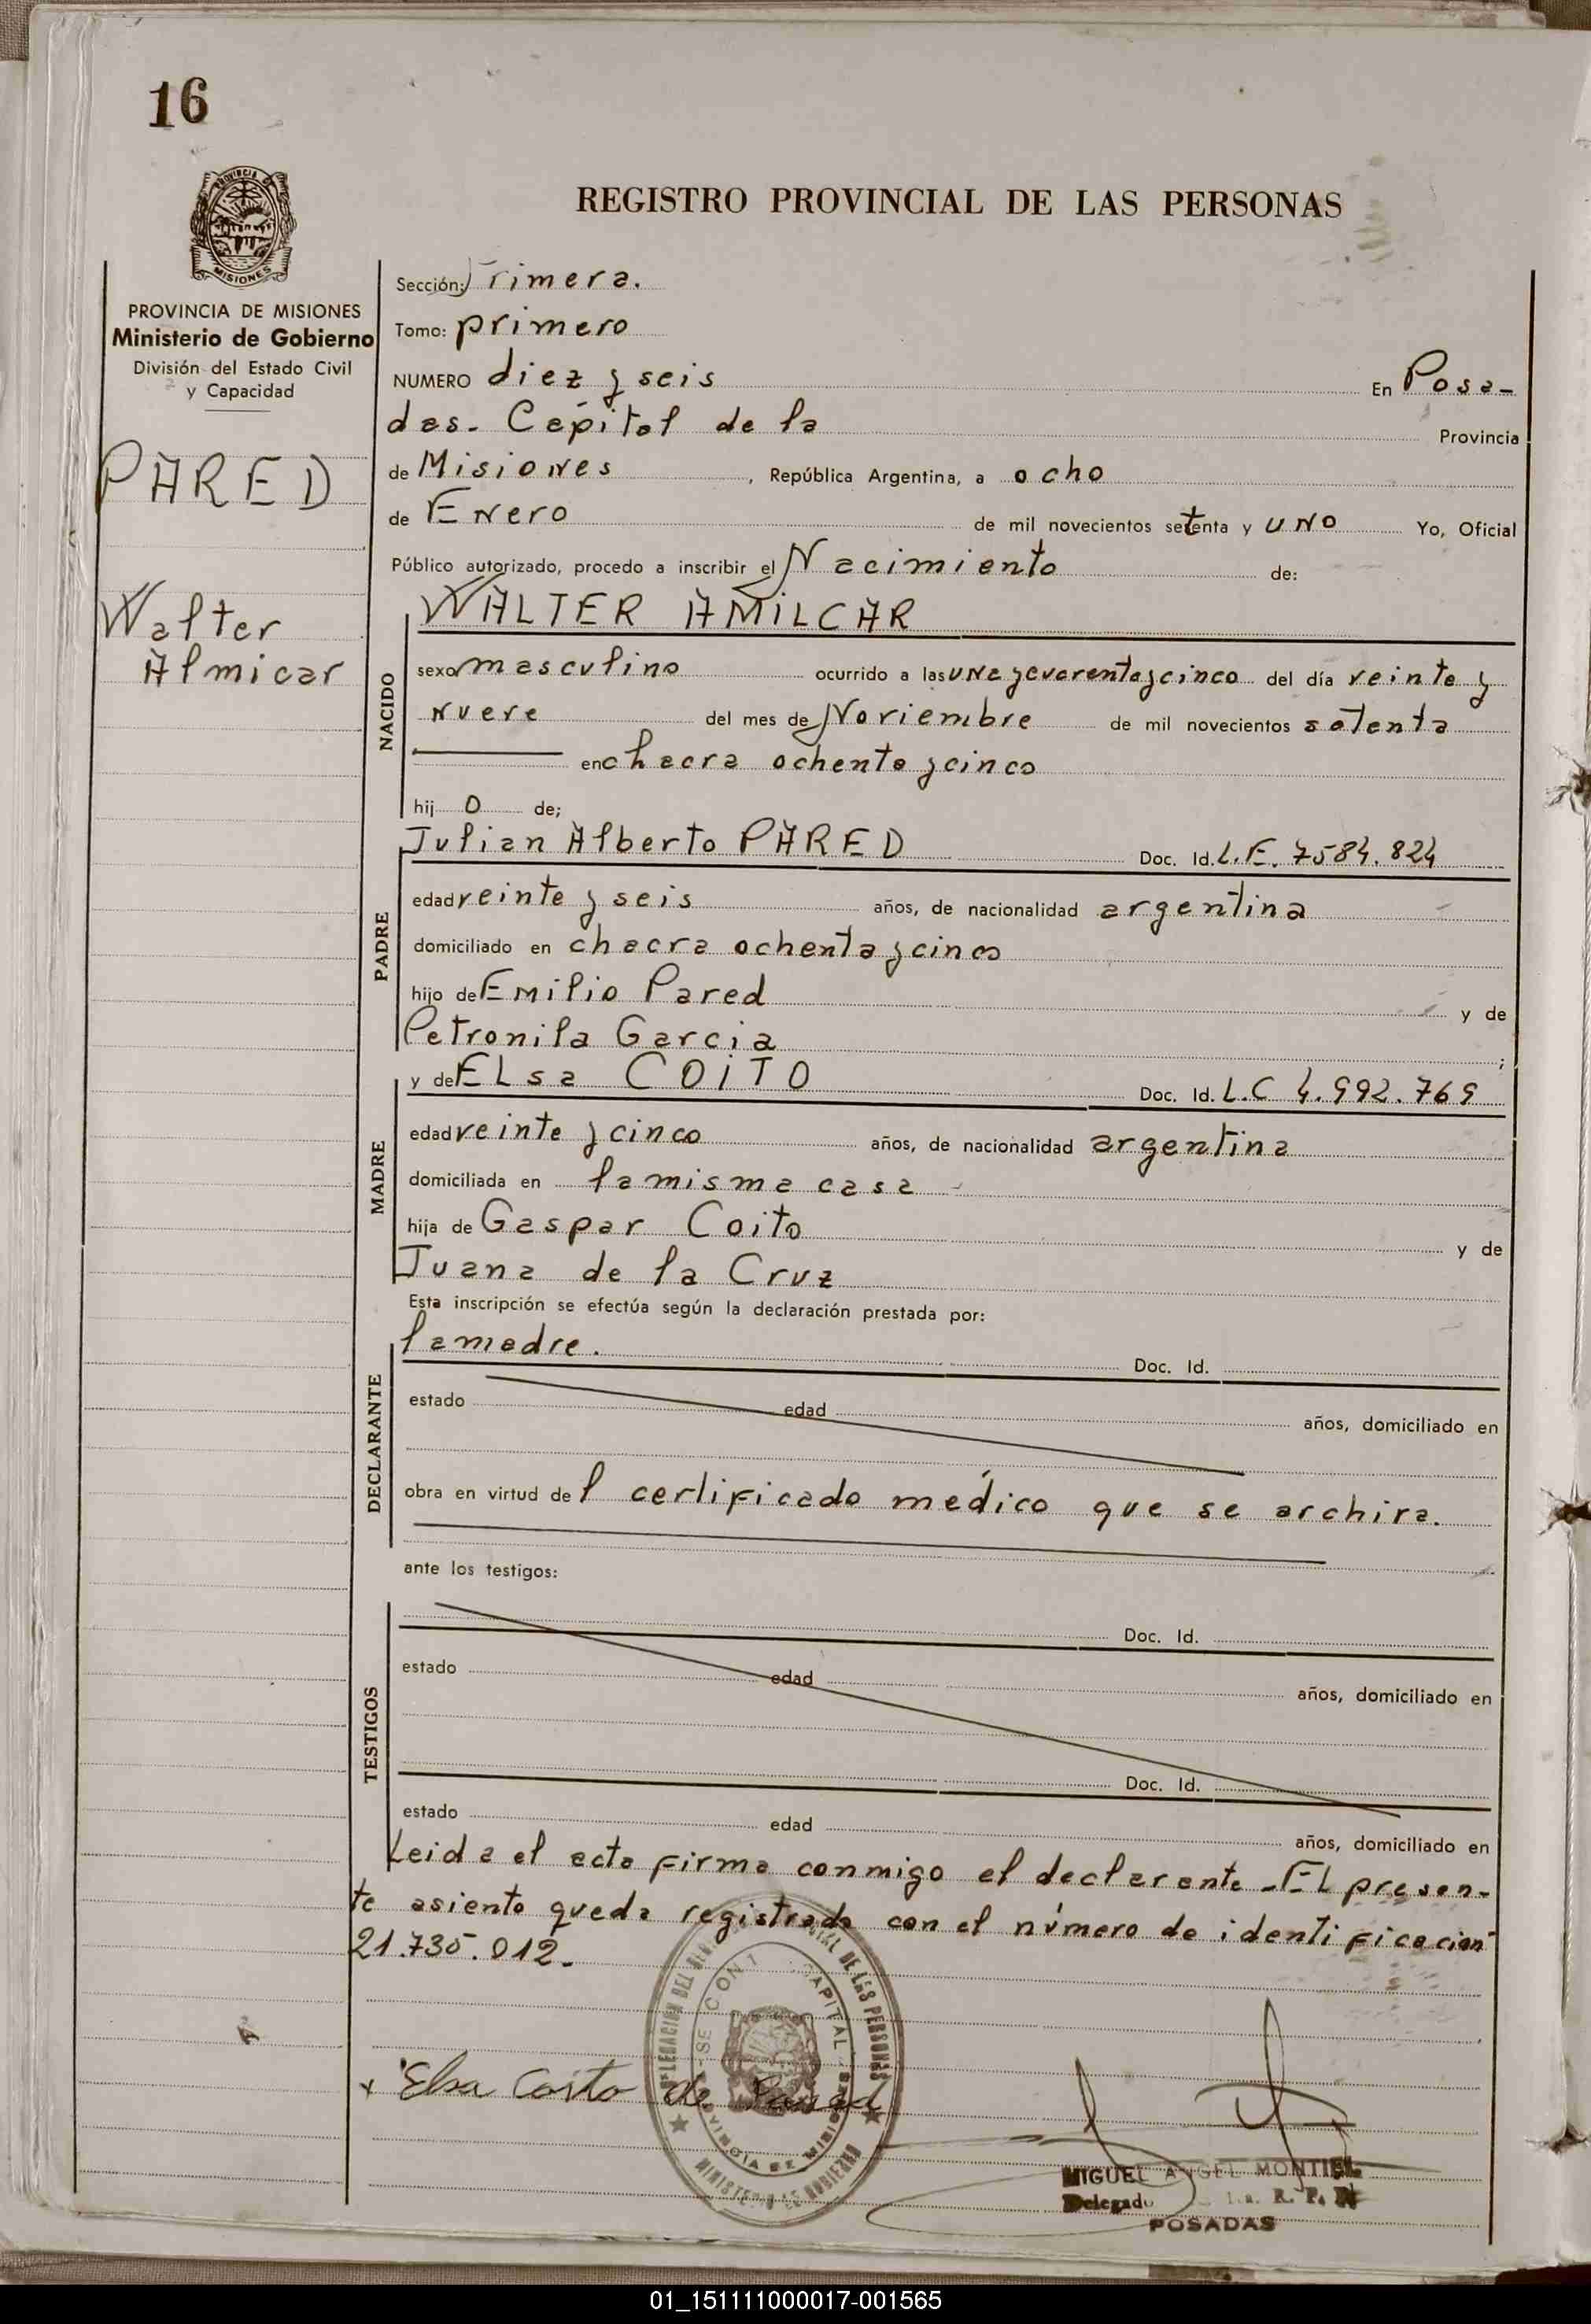 16
PROVINCIA DE
MISIONES
REGISTRO PROVINCIAL DE LAS PERSONAS
PROVINCIA DE MISIONES
Ministerio de Gobierno
División del Estado Civil
y Capacidad
PARED
Walter
Almicar
Sección: Primera.
Tomo: primero
NUMERO diez y seis En Posa-
das. Capital de la Provincia
de Misiones, República Argentina, a ocho
de Enero de mil novecientos setenta y uno Yo, Oficial
Público autorizado, procedo a inscribir el Nacimiento de:
NACIDO
WALTER AMILCAR
sexo masculino ocurrido a las una y cuarenta y cinco del día veinte y
nueve del mes de Noviembre de mil novecientos setenta
en chacra ochenta y cinco
hij o de;
PADRE
Julian Alberto PARED Doc. Id. L.E. 7584.824
edad veinte y seis años, de nacionalidad argentina
domiciliado en chacra ochenta y cinco
hijo de Emilio Pared y de
Petronila Garcia ;
MADRE
y de ELsa COiTO Doc. Id. L.C 4.992.769
edad veinte y cinco años, de nacionalidad argentina
domiciliada en la misma casa
hija de Gaspar Coito y de
Juana de la Cruz
Esta inscripción se efectúa según la declaración prestada por:
DECLARANTE
la madre. Doc. Id.
estado edad años, domiciliado en
obra en virtud de l certificado médico que se archiva.
ante los testigos:
TESTIGOS
Doc. Id.
estado edad años, domiciliado en
Doc. Id.
estado edad años, domiciliado en
Leida el acta firma conmigo el declarante - EL presen-
te asiento queda registrado con el número de identificacion
21.735.012.
DE LAS PERSONAS
CAPITAL
PROVINCIA DE MISIONES
MINISTERIO DE GOBIERNO
x Elsa Coito de Pared
MIGUEL ANGEL MONTIEL
Delegado R. P.
POSADAS
01_151111000017-001565